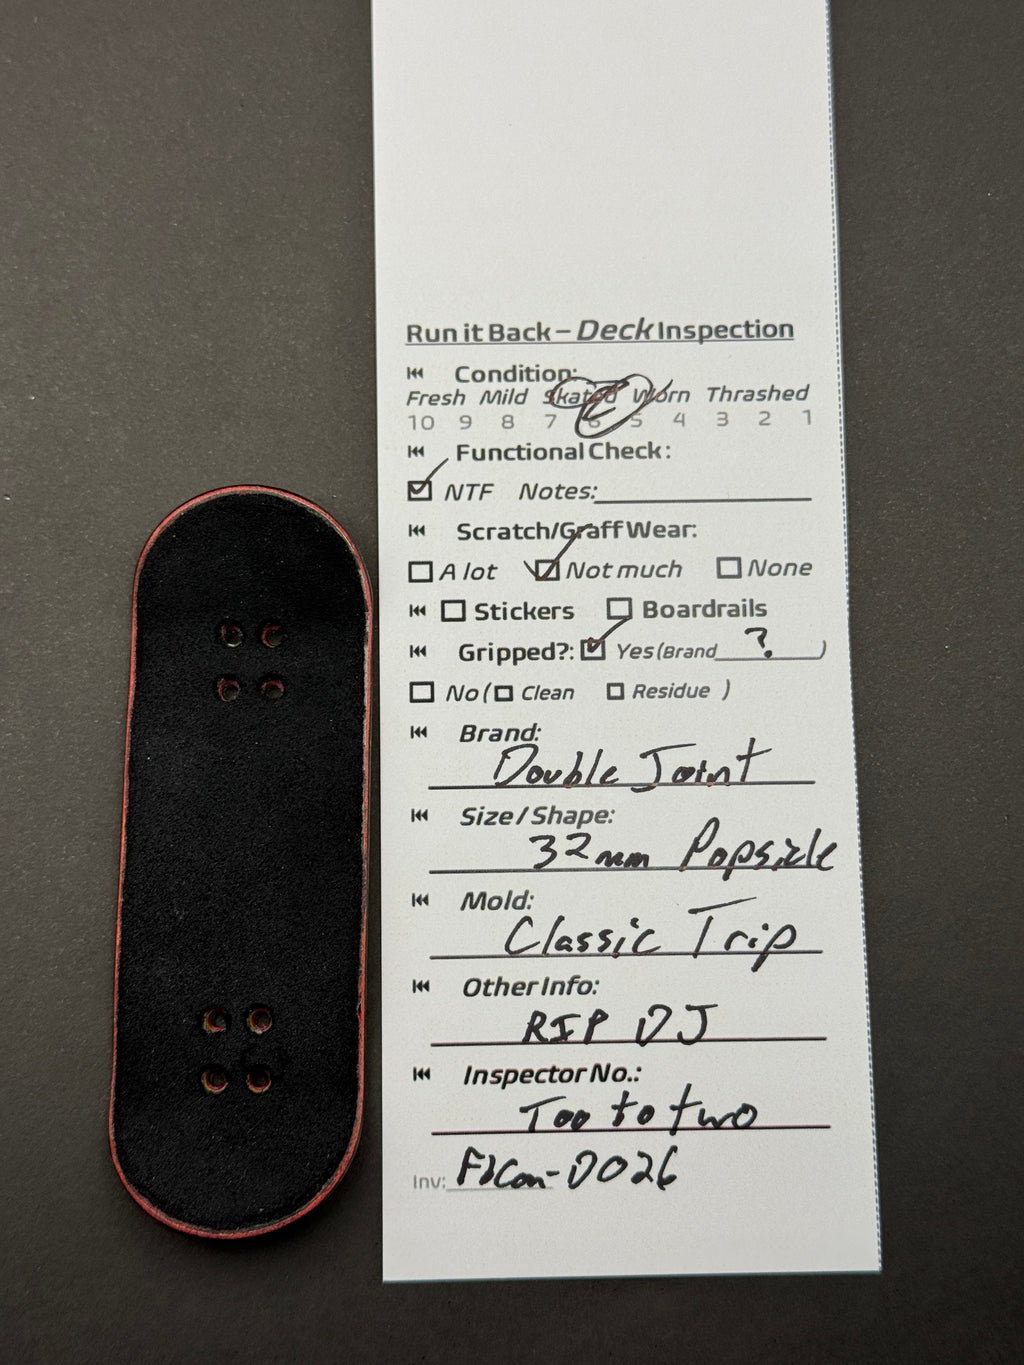 Run it Back – Deck Inspection
Condition:
Fresh Mild Skated Worn Thrashed
10 9 8 7 6 5 4 3 2 1
Functional Check:
NTF Notes:
Scratch/Graff Wear:
A lot Not much None
Stickers Boardrails
Gripped?: Yes (Brand ? )
No ( Clean Residue )
Brand:
Double Joint
Size / Shape:
32mm Popsicle
Mold:
Classic Trip
Other Info:
RIP DJ
Inspector No.:
Too to two
Inv: FBCon-0026